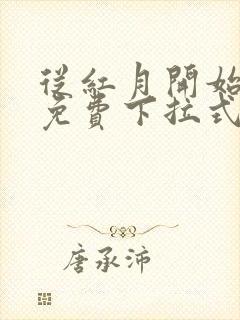 從紅月開始
免費下拉式
唐承沛